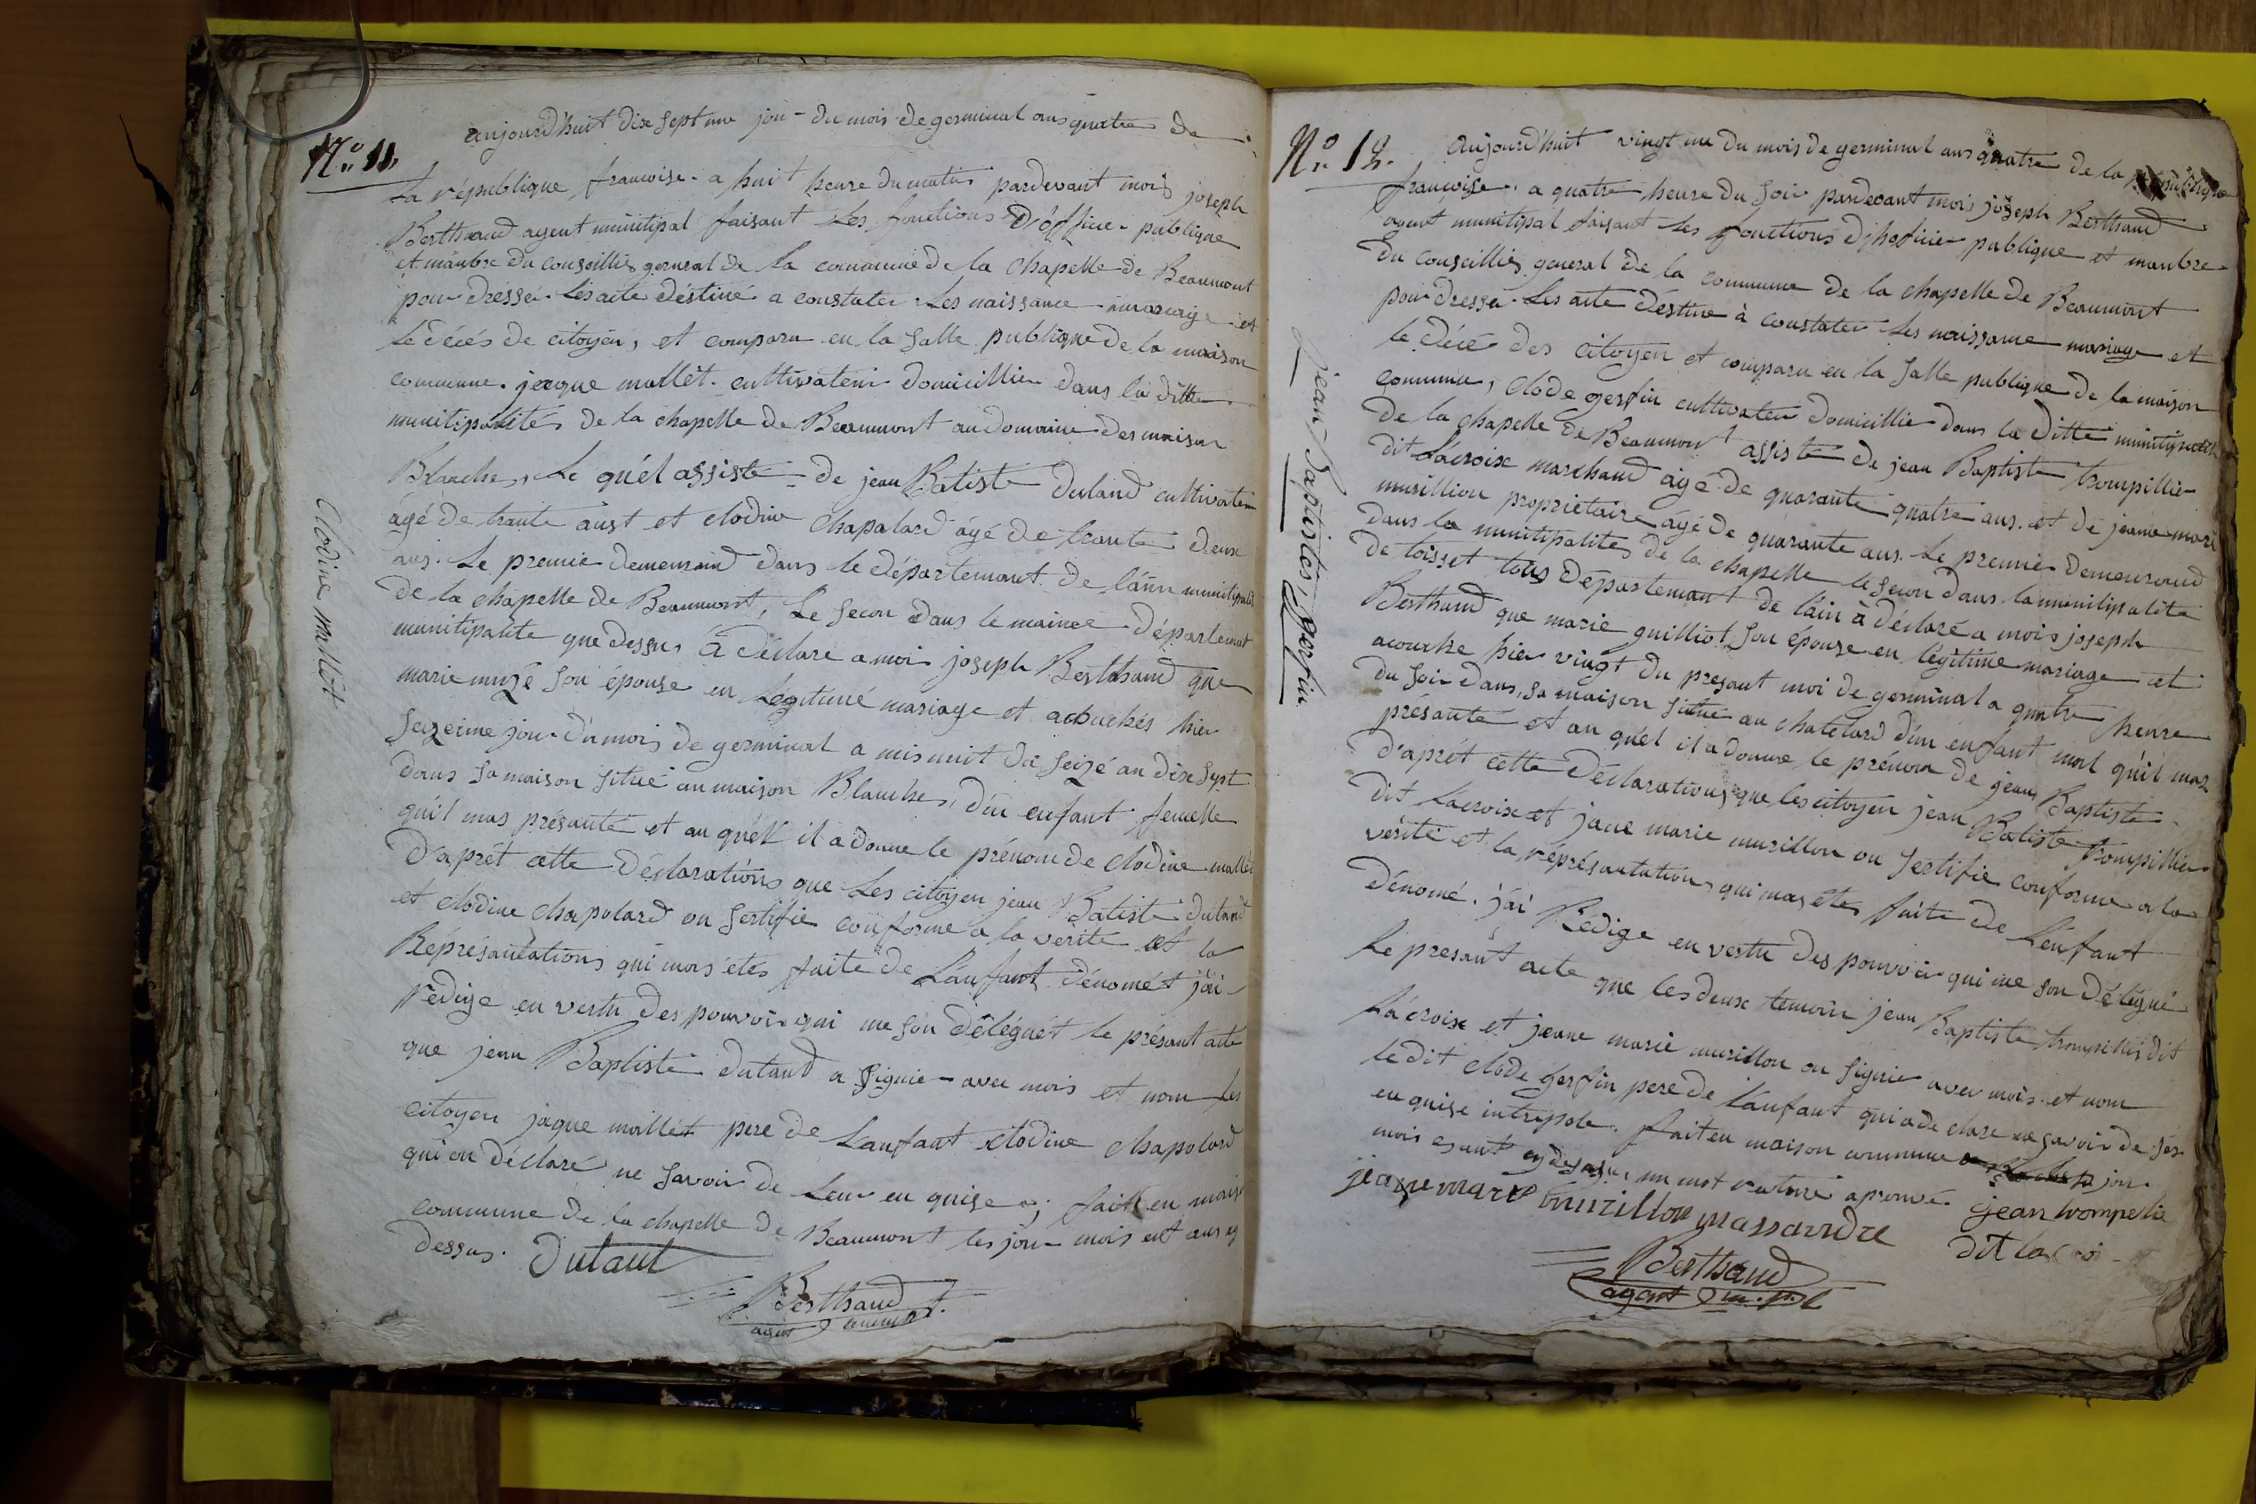 N.° 11.
aujourd'huit dix sept me jou- du mois de germinal ans quatres de
La république francoise. a huit heure du matin pardevant mois joseph
Berthaud agent munitipal faisant Les fonctions D'officie publique
et manbre du conseillies general de la commune de la chapelle de Beaumont
pour dressé. Les acte déstiné a constater Les naissance mariage et
Le décés de citoyen, et comparu en la Salle publique de la maison
commune. jacque mallet. cultivateur domicillie dans la ditte
munitipalités de la chapelle de Beaumont au domaine des maison
Blanche, Le quél assisté de jean Batiste dutand cultivateur
âgé de trante aust et clodine chapalard âgé de trante deux
ans. Le premie demeurand dans le département de l'ain munitipalité
de la chapelle de Beaumont, Le Secon dans le maime département
munitipalite que dessus à déclare a moi joseph Berthaud que
marie muzé Son épouse en Légitime mariage et acouchés hier
Seizeime jou- du mois de germinal a minuit du Seizé au dix Sept
dans Sa maison Situé au maison Blanches, d'un enfant femelle
qu'il mas présanté et au quél il a donne le prénom de clodine mallet
D'aprét cette Déclarations que Les citoyen jean Batiste dutand
et clodine chapolard on Sertifie conforme a la vérite et la
Représantations qui mois étés faite de L'anfant dénomét j'ai
rédige en vertu des pouvoir qui me Son déléguét le présant acte
que jean Baptiste dutand a Signie avec mois et nom Les
citoyen jaque mallét pere de L'anfant clodine chapolard
qui on déclaré ne Savoir de Leur en quise; fait en maison
commune de la chapelle de Beaumont les jou- mois ent ans cy
dessus. Dutaut
Berthaud
agent
Clodine mallét
N.° 12.
Aujourd'huit vingt me du mois de germinal ans quatre de la république
francoise. a quatre heure du Soir pardevant mois joseph Berthaud
agent munitipal faisant les fonctions d'hoficie publique et manbre
du conseillies general de la commune de la chapelle de Beaumont
pour dressé. Les acte déstine à constater les naissance mariage et
le décé des citoyen et comparu en la Salle publique de la maison
commune, clode gerfin cultivateu domicillie dans la ditte munitipalité
de la chapelle de Beaumont assiste de jean Baptiste trompillie
dit Lacroix marchand âgé de quarante quatre ans. et de jeanne marie
murillion proprietaire âgé de quarante ans. Le premie demeurand
dans la munitipalités de la chapelle le Secon dans la munitipalité
de loisset tous département de l'ain à déclaré a mois joseph
Berthaud que marie guilliot Son épouze en légitime mariage et
acourhe hier vingt du presant moi de germinal a quatre heure
du Soir dans Sa maison Située au chatelard d'un enfant mal qu'il mas
présanté et au quél il a donne le prénom de jean Baptiste
d'aprét cette déclarations que les citoyen jean Batiste trompillie
dit Lacroix et jane marie murillon on Sertifie conforme a la
vérité et la représantations qui mas étés faite de L'enfant
dénomé. j'ai Rédige en vertu des pouvoir qui me Son délégué
Le presant acte que les deux temoin jean Baptiste trompillis dit
Lacroix et jeane marie murillon on Signie avec mois et nom
le dit clode gerfin pere de L'anfant qui a declare ne Savoir de Ses
en quise intrepole. fait en maison commune jou-
mois un mot ratoré aprouvé.
jeanne marie murillon massandre jean trompelie
dit la croi
Berthaud
agent
jean Baptistes, gerfin